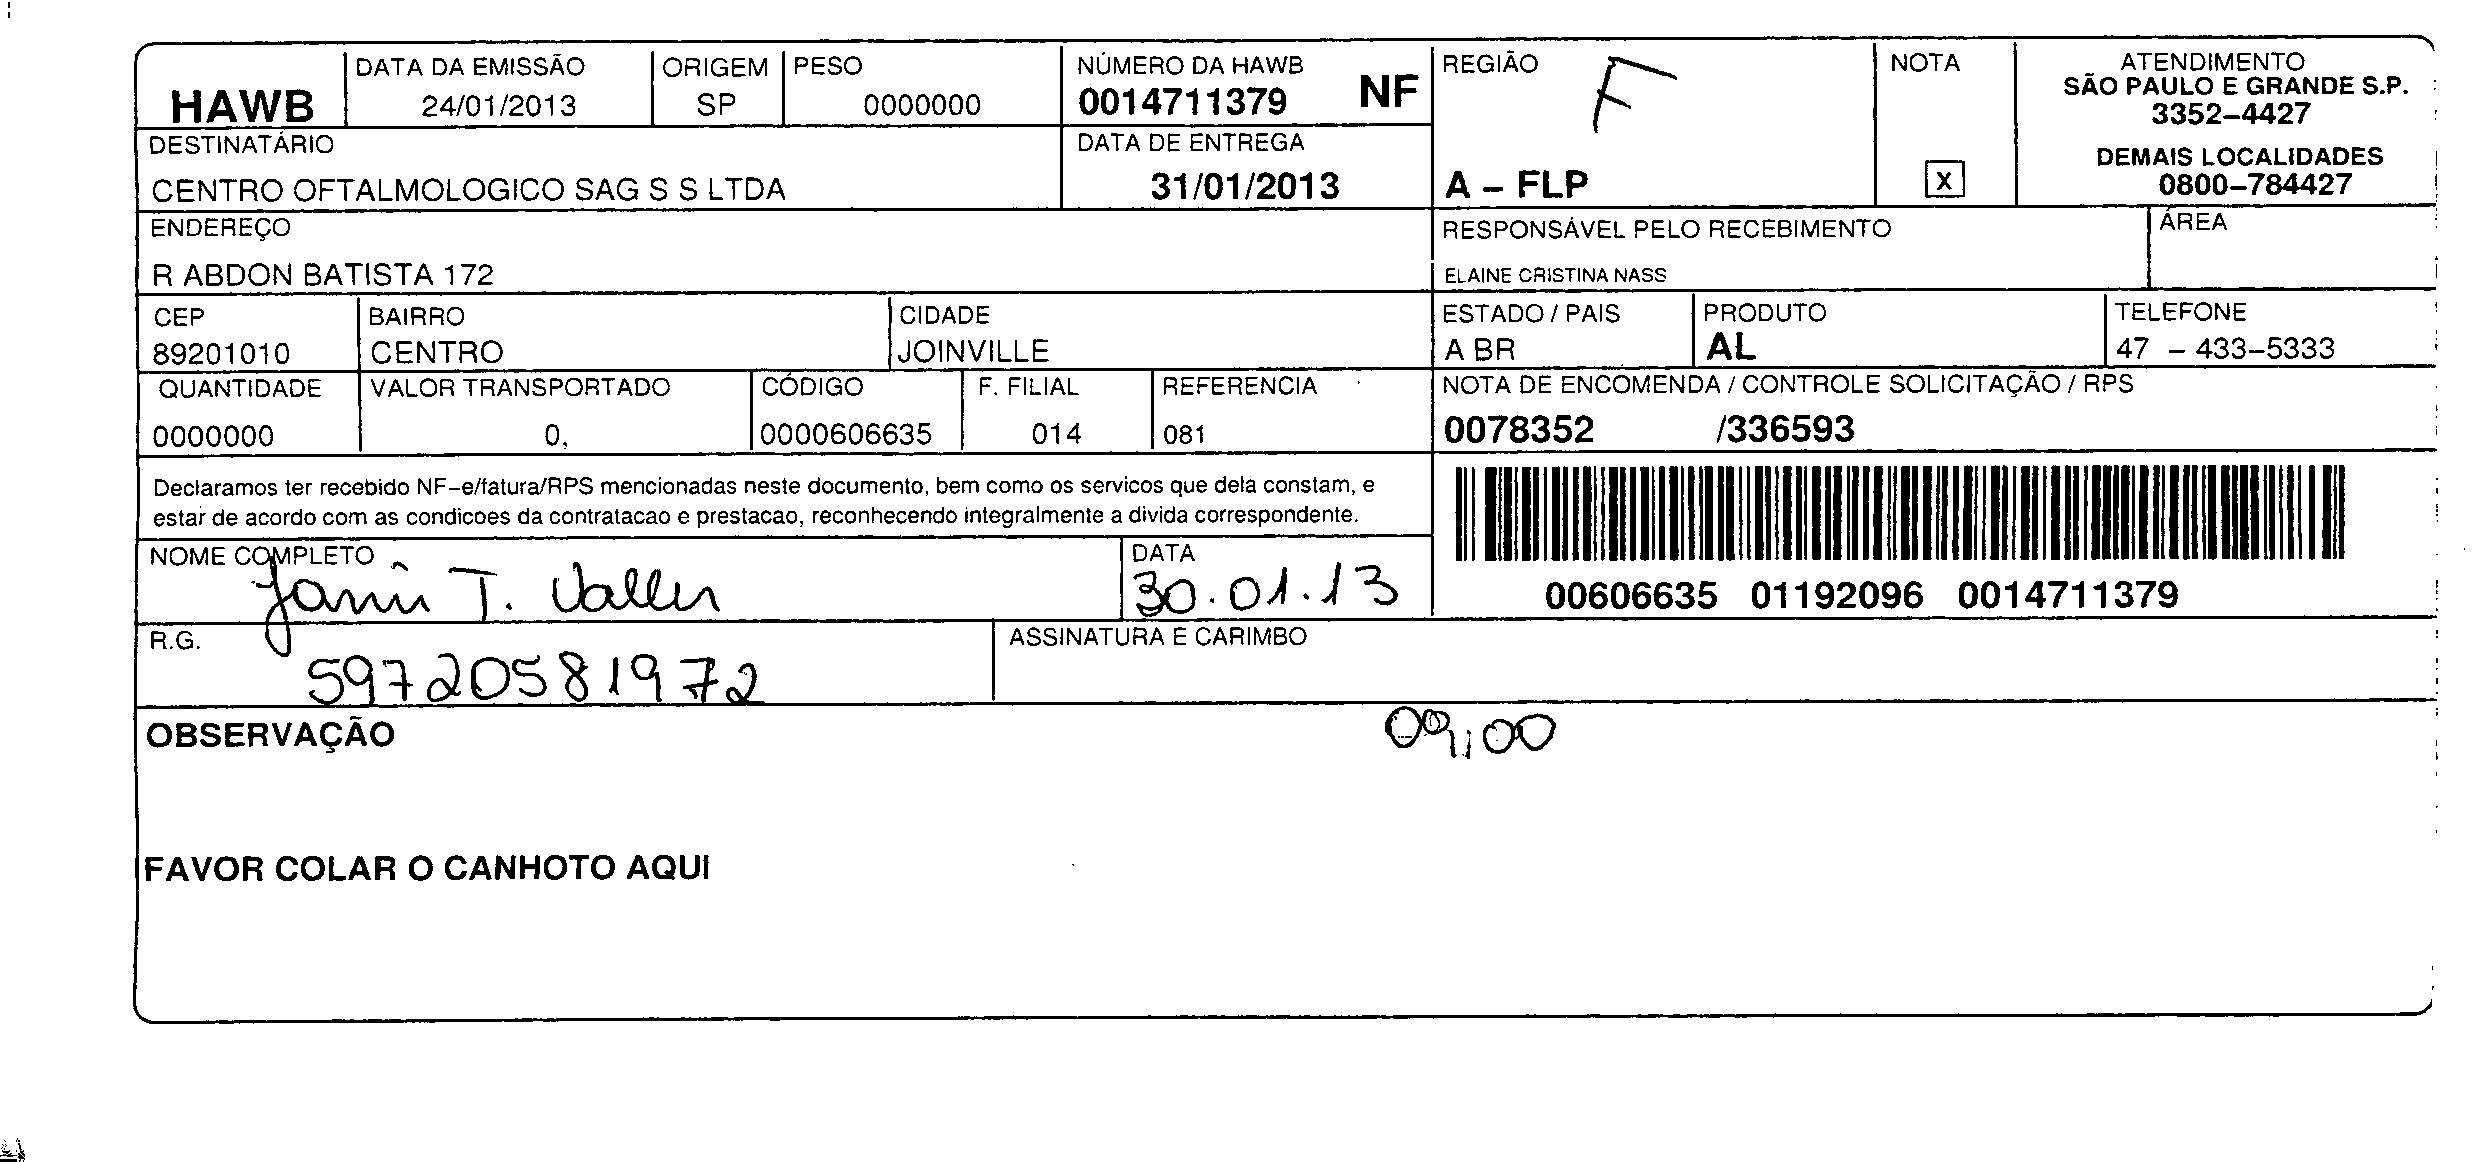 HAWB
DATA DA EMISSÃO
24/01/2013
ORIGEM
SP
PESO
0000000
NÚMERO DA HAWB
0014711379 NF
REGIÃO
F
A – FLP
NOTA
X
ATENDIMENTO
SÃO PAULO E GRANDE S.P.
3352–4427
DEMAIS LOCALIDADES
0800–784427
DESTINATÁRIO
CENTRO OFTALMOLOGICO SAG S S LTDA
DATA DE ENTREGA
31/01/2013
ENDEREÇO
R ABDON BATISTA 172
RESPONSÁVEL PELO RECEBIMENTO
ELAINE CRISTINA NASS
ÁREA
CEP
89201010
BAIRRO
CENTRO
CIDADE
JOINVILLE
ESTADO / PAIS
A BR
PRODUTO
AL
TELEFONE
47 – 433–5333
QUANTIDADE
0000000
VALOR TRANSPORTADO
0,
CÓDIGO
0000606635
F. FILIAL
014
REFERENCIA
081
NOTA DE ENCOMENDA / CONTROLE SOLICITAÇÃO / RPS
0078352 /336593
Declaramos ter recebido NF–e/fatura/RPS mencionadas neste documento, bem como os servicos que dela constam, e
estar de acordo com as condicoes da contratacao e prestacao, reconhecendo integralmente a divida correspondente.
00606635 01192096 0014711379
NOME COMPLETO
T.
DATA
30.01.13
R.G.
59720581972
ASSINATURA E CARIMBO
OBSERVAÇÃO
09:00
FAVOR COLAR O CANHOTO AQUI